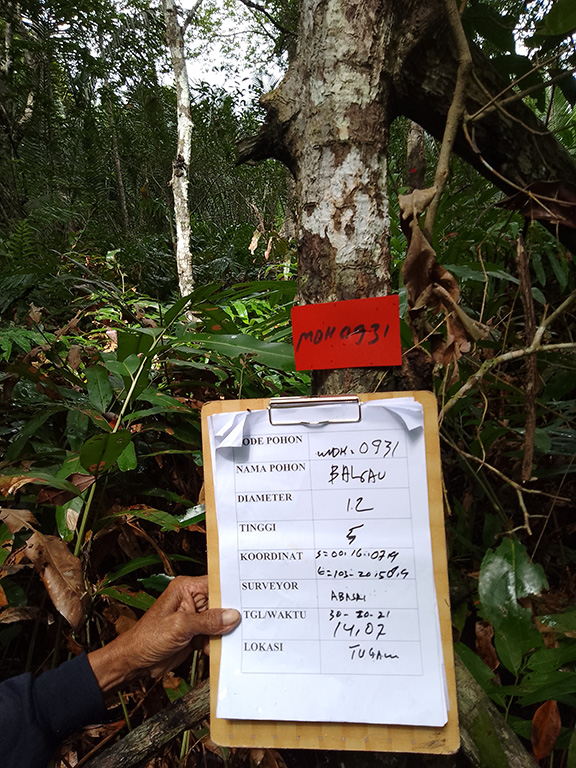 MDH 0931
KODE POHON MDH. 0931
NAMA POHON BALGAU
DIAMETER 1.2
TINGGI 5
KOORDINAT S=00.16.079
SURVEYOR
TGL/WAKTU 30-10-21
14,07
LOKASI